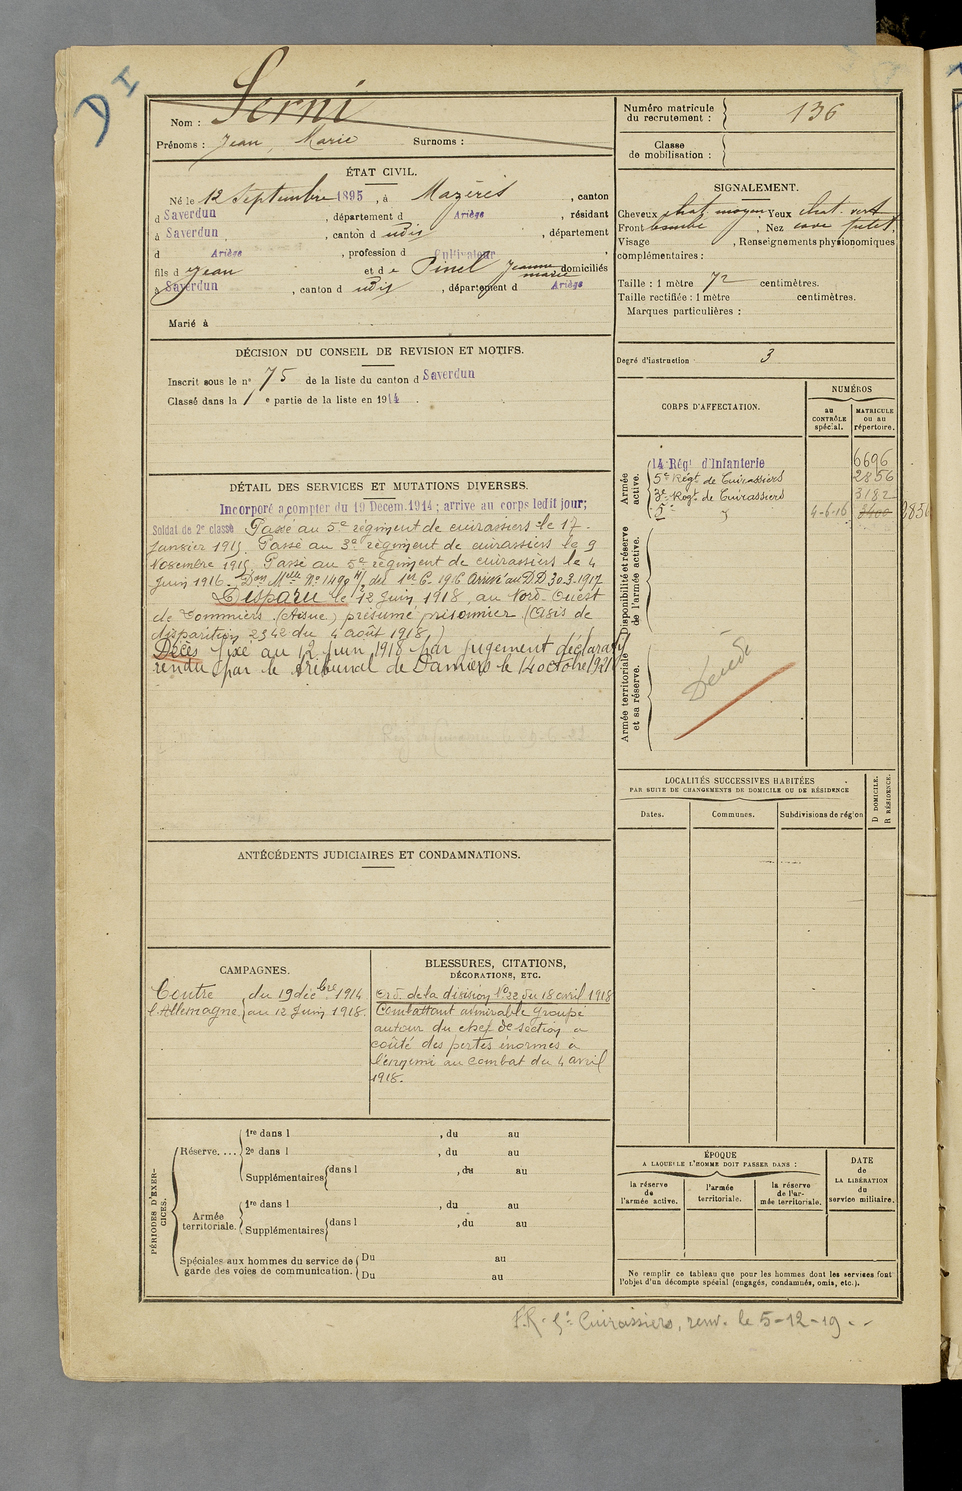 DI
Nom : Serni
Prénoms : Jean, Marie Surnoms :
ÉTAT CIVIL.
Né le 12 Septembre 1895, à Mazères, canton
d Saverdun, département d Ariège, résidant
à Saverdun, canton d udis, département
d Ariège, profession d Cultivateur,
fils d Jean et de Pinel Jeanne marie domiciliés
à Saverdun, canton d udis, département d Ariège
Marié à
DÉCISION DU CONSEIL DE REVISION ET MOTIFS.
Inscrit sous le n° 75 de la liste du canton d Saverdun
Classé dans la 1 e partie de la liste en 1914.
DÉTAIL DES SERVICES ET MUTATIONS DIVERSES.
Incorporé a compter du 19 Décem.1914 ; arrive au corps ledit jour;
Soldat de 2e classe Passé au 5e régiment de cuirassiers le 17
Janvier 1915. Passé au 3e régiment de cuirassiers le 9
Novembre 1915. Passé au 5e régiment de cuirassiers le 4
Juin 1916. Don Mlle No 1490 du 1er 6. 1916 Arrivé au DD 30.3.1917
Disparu le 12 Juin 1918, au Nord-Ouest
de Dommiers (Aisne) présumé prisonnier (Avis de
disparition 2342 du 4 août 1918)
Décès fixé au 12 juin 1918 par jugement déclaratif
rendu par le tribunal de Pamiers le 14 octobre 1921
ANTÉCÉDENTS JUDICIAIRES ET CONDAMNATIONS.
CAMPAGNES.
Contre du 19 décbre 1914
l'Allemagne au 12 Juin 1918.
BLESSURES, CITATIONS,
DÉCORATIONS, ETC.
Ord. de la division No 32 du 18 avril 1918
Combattant admirable groupé
autour du chef de section a
coûté des pertes énormes à
l'ennemi au combat du 4 avril
1918.
PÉRIODES D'EXERCICES.
Réserve....
1re dans l , du au
2e dans l , du au
Supplémentaires dans l , du au
Armée territoriale.
1re dans l , du au
Supplémentaires dans l , du au
Spéciales aux hommes du service de garde des voies de communication.
Du au
Du au
Numéro matricule
du recrutement : 136
Classe
de mobilisation :
SIGNALEMENT.
Cheveux chat. moyen Yeux chat. vert
Front bombé, Nez cave
Visage , Renseignements physionomiques
complémentaires :
Taille : 1 mètre 72 centimètres.
Taille rectifiée : 1 mètre centimètres.
Marques particulières :
Degré d'instruction 3
CORPS D'AFFECTATION.
NUMÉROS
au CONTRÔLE spécial.
MATRICULE ou au répertoire.
Armée active.
14 Régt d'Infanterie 6696
5e Régt de Cuirassiers 2856
3e Regt de Cuirassiers 3182
5e " 4-6-16 3400 2856
Disponibilité et réserve de l'armée active.
Armée territoriale et sa réserve.
Décédé
LOCALITÉS SUCCESSIVES HABITÉES
PAR SUITE DE CHANGEMENTS DE DOMICILE OU DE RÉSIDENCE
D DOMICILE.
R RÉSIDENCE.
Dates. Communes. Subdivisions de région
ÉPOQUE
A LAQUELLE L'HOMME DOIT PASSER DANS :
la réserve de l'armée active.
l'armée territoriale.
la réserve de l'armée territoriale.
DATE
de
LA LIBÉRATION
du
service militaire.
Ne remplir ce tableau que pour les hommes dont les services font
l'objet d'un décompte spécial (engagés, condamnés, omis, etc.).
F.R. 5e Cuirassiers, renv. le 5-12-19